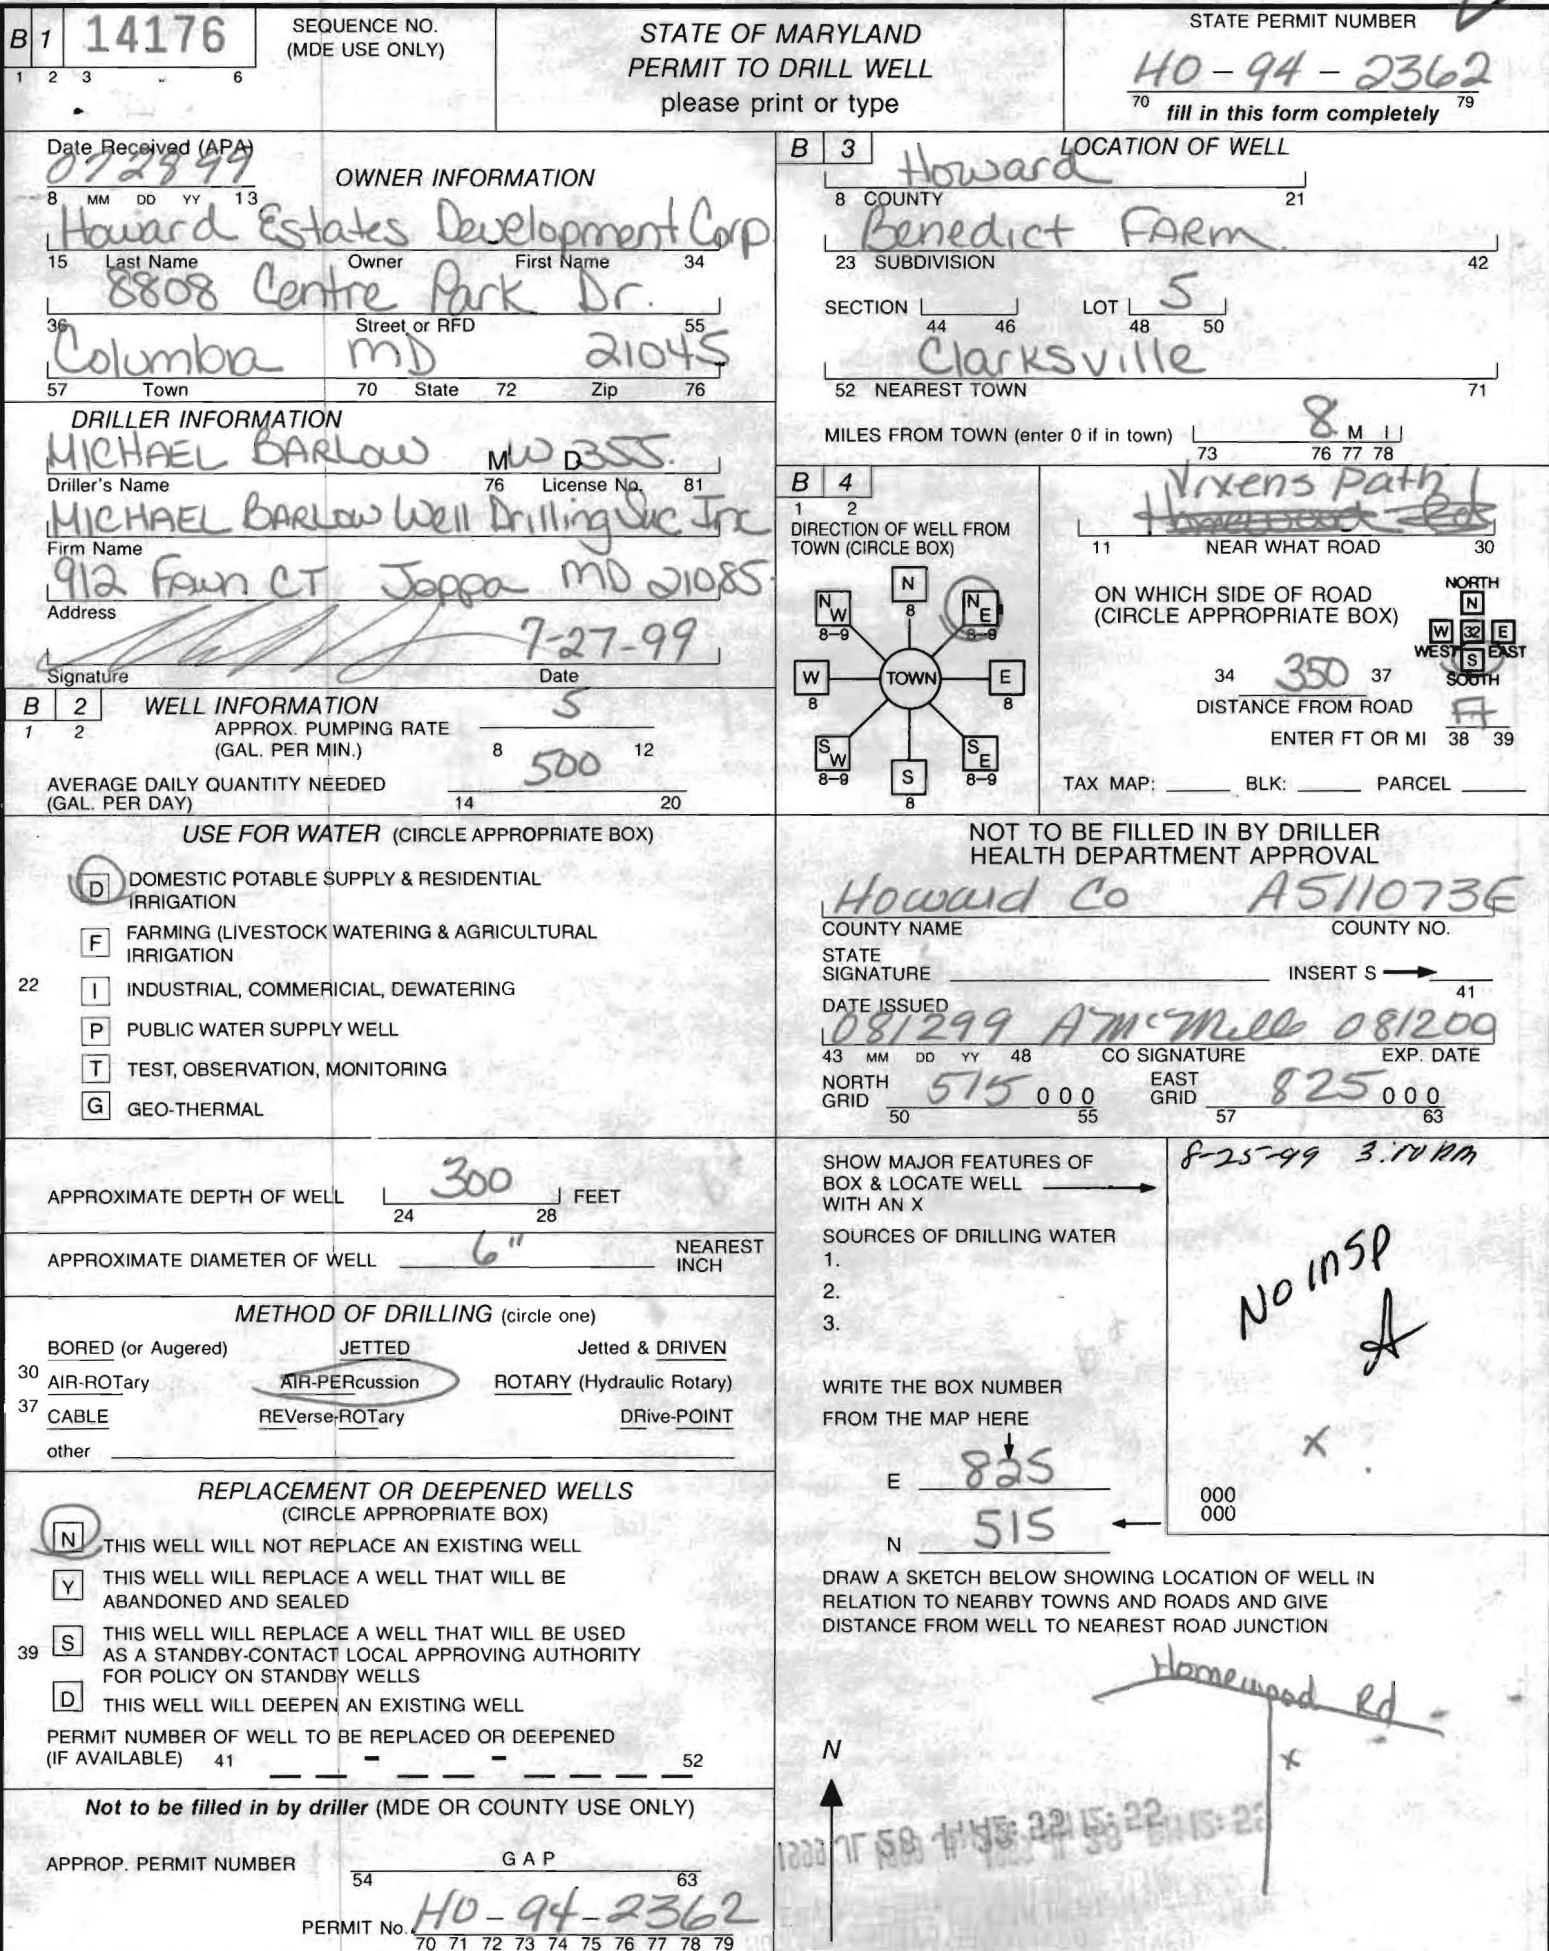 B 1 14176
1 2 3 6
SEQUENCE NO.
(MDE USE ONLY)
STATE OF MARYLAND
PERMIT TO DRILL WELL
please print or type
STATE PERMIT NUMBER
HO-94-2362
70 79
fill in this form completely
Date Received (APA)
072899
8 MM DD YY 13
OWNER INFORMATION
Howard Estates Development Corp
15 Last Name Owner First Name 34
8808 Centre Park Dr.
36 Street or RFD 55
Columbia MD 21045
57 Town 70 State 72 Zip 76
DRILLER INFORMATION
MICHAEL BARLOW MWD355
Driller's Name 76 License No. 81
MICHAEL BARLOW Well Drilling Svc Inc
Firm Name
912 Fawn CT Joppa MD 21085
Address
7-27-99
Signature Date
B 2 WELL INFORMATION
1 2
APPROX. PUMPING RATE 5
(GAL. PER MIN.) 8 12
AVERAGE DAILY QUANTITY NEEDED 500
(GAL. PER DAY) 14 20
USE FOR WATER (CIRCLE APPROPRIATE BOX)
D DOMESTIC POTABLE SUPPLY & RESIDENTIAL
IRRIGATION
F FARMING (LIVESTOCK WATERING & AGRICULTURAL
IRRIGATION
22 I INDUSTRIAL, COMMERICIAL, DEWATERING
P PUBLIC WATER SUPPLY WELL
T TEST, OBSERVATION, MONITORING
G GEO-THERMAL
APPROXIMATE DEPTH OF WELL 300 FEET
24 28
APPROXIMATE DIAMETER OF WELL 6" NEAREST
INCH
METHOD OF DRILLING (circle one)
BORED (or Augered) JETTED Jetted & DRIVEN
30 AIR-ROTary AIR-PERcussion ROTARY (Hydraulic Rotary)
37 CABLE REVerse-ROTary DRive-POINT
other
REPLACEMENT OR DEEPENED WELLS
(CIRCLE APPROPRIATE BOX)
N THIS WELL WILL NOT REPLACE AN EXISTING WELL
Y THIS WELL WILL REPLACE A WELL THAT WILL BE
ABANDONED AND SEALED
39 S THIS WELL WILL REPLACE A WELL THAT WILL BE USED
AS A STANDBY-CONTACT LOCAL APPROVING AUTHORITY
FOR POLICY ON STANDBY WELLS
D THIS WELL WILL DEEPEN AN EXISTING WELL
PERMIT NUMBER OF WELL TO BE REPLACED OR DEEPENED
(IF AVAILABLE) 41 - - 52
Not to be filled in by driller (MDE OR COUNTY USE ONLY)
APPROP. PERMIT NUMBER G A P
54 63
PERMIT No. HO-94-2362
70 71 72 73 74 75 76 77 78 79
B 3 LOCATION OF WELL
Howard
8 COUNTY 21
Benedict FARM
23 SUBDIVISION 42
SECTION LOT 5
44 46 48 50
Clarksville
52 NEAREST TOWN 71
MILES FROM TOWN (enter 0 if in town) 8 M I
73 76 77 78
B 4
1 2
DIRECTION OF WELL FROM
TOWN (CIRCLE BOX)
N
8
NW
8-9
NE
8-9
W
8
TOWN
E
8
SW
8-9
S
8
SE
8-9
Vixens Path
Homewood Rd
11 NEAR WHAT ROAD 30
ON WHICH SIDE OF ROAD
(CIRCLE APPROPRIATE BOX)
NORTH
N
W 32 E
WEST EAST
S
SOUTH
34 350 37
DISTANCE FROM ROAD
FT
ENTER FT OR MI 38 39
TAX MAP: BLK: PARCEL
NOT TO BE FILLED IN BY DRILLER
HEALTH DEPARTMENT APPROVAL
Howard Co A511073E
COUNTY NAME COUNTY NO.
STATE
SIGNATURE INSERT S
41
DATE ISSUED
081299 A McMills 081200
43 MM DD YY 48 CO SIGNATURE EXP. DATE
NORTH
GRID 515 000
50 55
EAST
GRID 825 000
57 63
SHOW MAJOR FEATURES OF
BOX & LOCATE WELL
WITH AN X
SOURCES OF DRILLING WATER
1.
2.
3.
WRITE THE BOX NUMBER
FROM THE MAP HERE
E 825
N 515
8-25-99 3:10 PM
No insp
A
X
000
000
DRAW A SKETCH BELOW SHOWING LOCATION OF WELL IN
RELATION TO NEARBY TOWNS AND ROADS AND GIVE
DISTANCE FROM WELL TO NEAREST ROAD JUNCTION
Homewood Rd
X
N